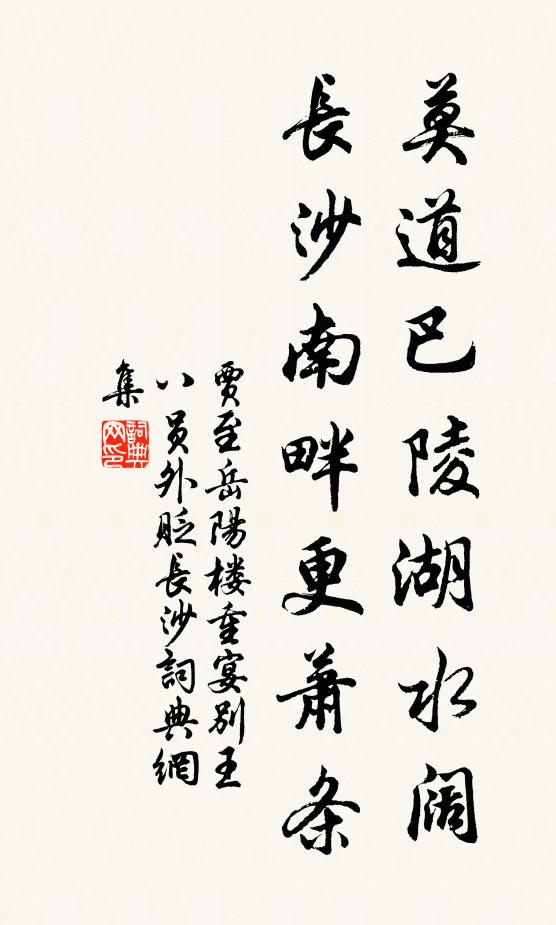 莫道巴陵湖水阔
長沙南畔更蕭条
賈至岳陽楼重宴別王
八員外貶長沙詞典網
集
詞典
网印